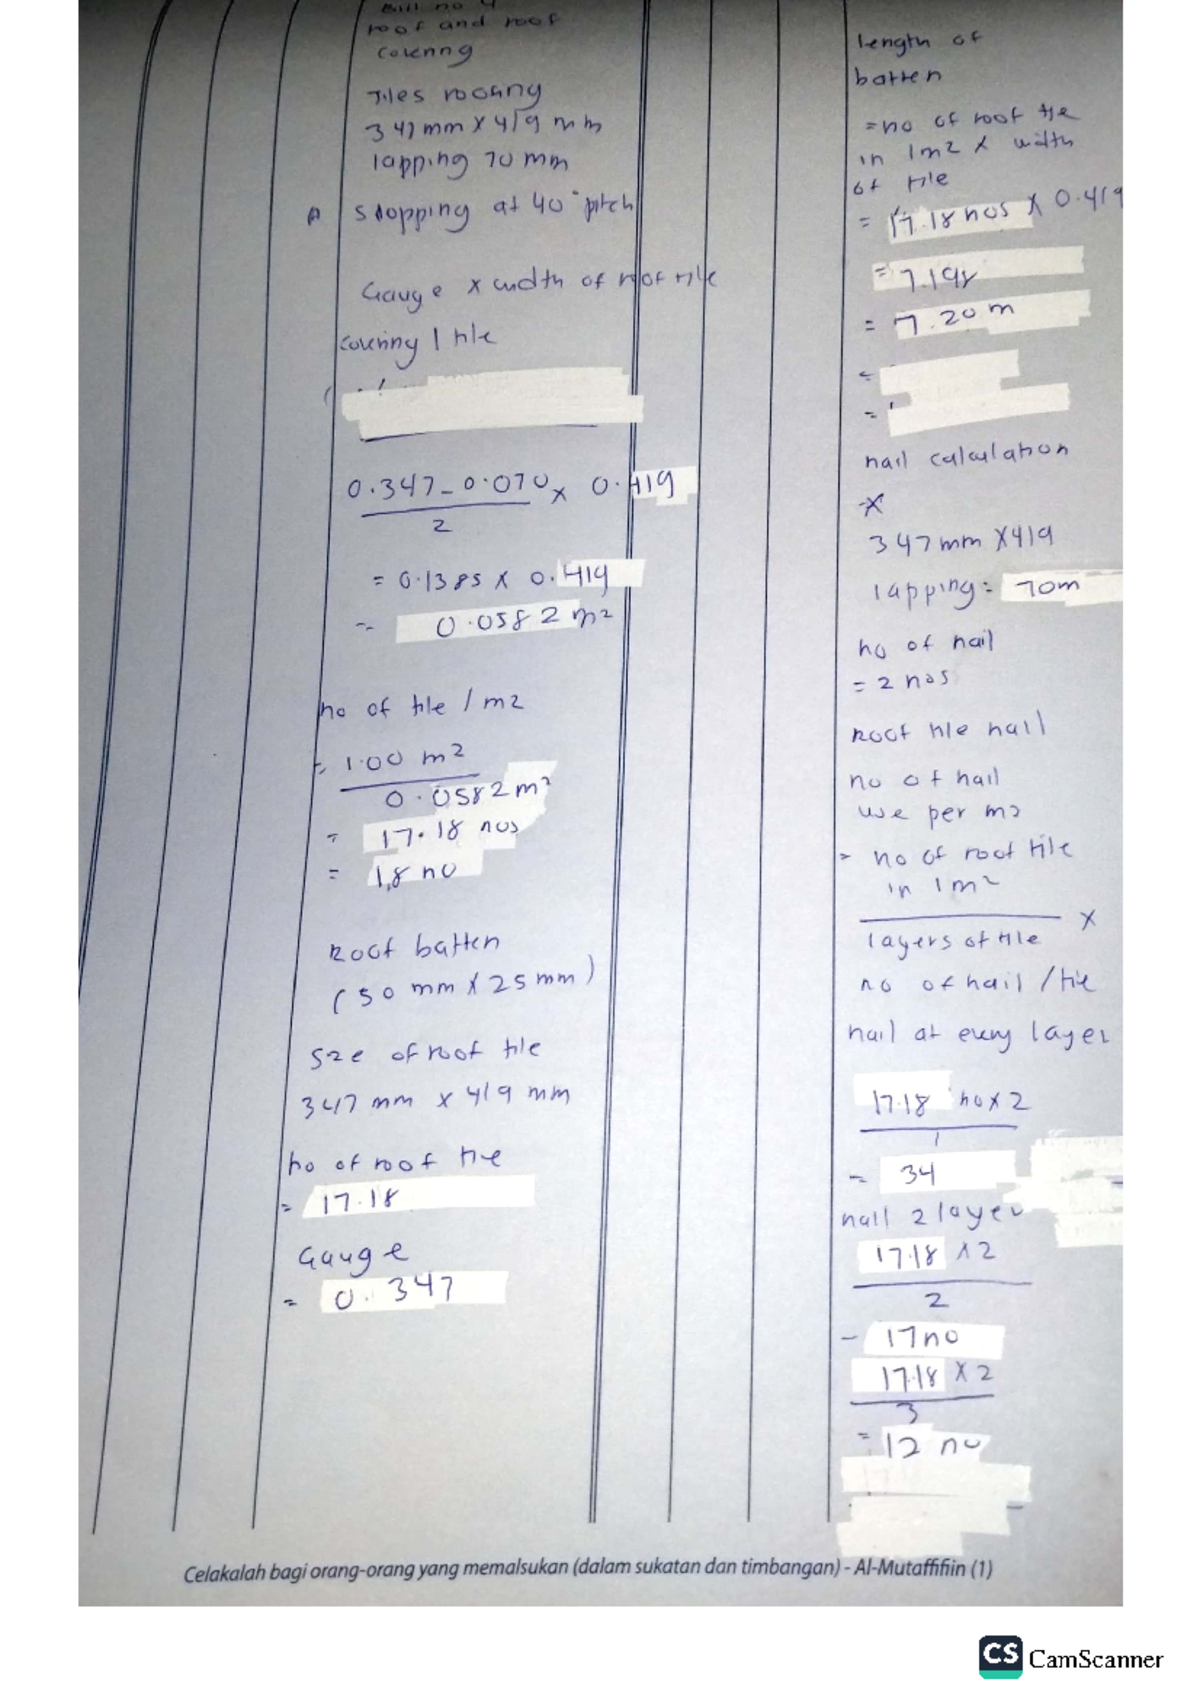 Bill no 4
roof and roof
covering
Tiles roofing
347 mm X 419 mm
lapping 70 mm
A slopping at 40° pitch
Gauge x width of roof tile
covering 1 tile
0.347 - 0.070 x 0.419
2
= 0.1385 x 0.419
= 0.0582 m2
no of tile / m2
= 1.00 m2
0.0582 m2
= 17.18 nos
= 18 no
Roof batten
(50 mm X 25 mm)
Size of roof tile
347 mm x 419 mm
no of roof tile
= 17.18
Gauge
= 0.347
length of
batten
= no of roof tile
in 1m2 X width
of tile
= 17.18 nos X 0.419
= 7.198
= 7.20 m
=
=
nail calculation
X
347mm X419
lapping = 70m
no of nail
= 2 nos
Roof tile nail
no of nail
use per m2
= no of roof tile
in 1m2
X
layers of tile
no of nail / tile
nail at every layer
17.18 no x 2
1
= 34
nail 2 layer
17.18 x 2
2
- 17 no
17.18 X 2
3
= 12 no
Celakalah bagi orang-orang yang memalsukan (dalam sukatan dan timbangan) - Al-Mutaffifiin (1)
CS CamScanner